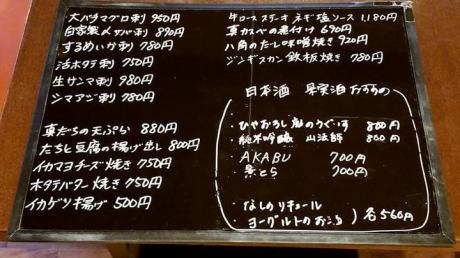 大バチマグロ刺 950円
自家製〆サバ刺 890円
するめいか刺 780円
活ホタテ刺 750円
生サンマ刺 980円
シマアジ刺 980円
真だちの天ぷら 880円
たちと豆腐の揚げ出し 800円
イカマヨチーズ焼き 750円
ホタテバター焼き 750円
イカゲソ揚げ 500円
牛ロースステーキ ネギ塩ソース 1,180円
真カスベの煮付け 690円
八角のだし味噌焼き 920円
ジンギスカン鉄板焼き 780円
日本酒 果実酒おすすめ
・ひやおろし うぐいす 800円
・純米吟醸 山法師 800円
・AKABU 700円
・景とら 700円
・なしのリキュール
・ヨーグルトのお酒 ) 各560円